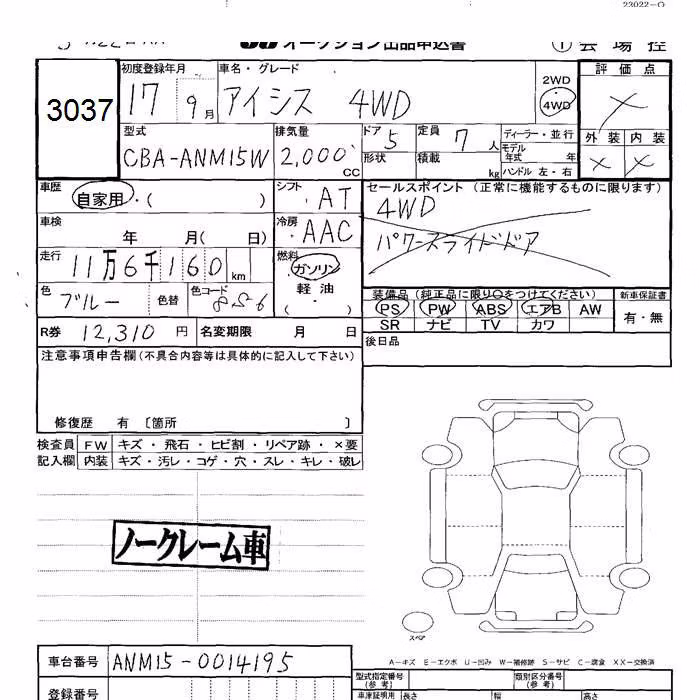 22022-O
オークション出品申込書 ① 会場控
3037
初度登録年月 車名・グレード 2WD 評価点
17 9月 アイシス 4WD 4WD ×
型式 排気量 ドア 5 定員 7人 ディーラー・並行 外装 内装
CBA-ANM15W 2,000cc 形状 積載 kg モデル年式 年 × ×
ハンドル 左・右
車歴 自家用・( ) シフト AT セールスポイント(正常に機能するものに限ります)
4WD
車検 年 月( 日) 冷房 AAC パワースライドドア
走行 11万6千160km 燃料 ガソリン
軽油
・( )
色 ブルー 色替 色コード 8S6 装備品(純正品に限り○をつけてください) 新車保証書
PS PW ABS エアB AW 有・無
R券 12,310円 名変期限 月 日 SR ナビ TV カワ
注意事項申告欄(不具合内容等は具体的に記入して下さい) 後日品
修復歴 有 〔箇所 〕
検査員 FW キズ・飛石・ヒビ割・リペア跡・×要
記入欄 内装 キズ・汚レ・コゲ・穴・スレ・キレ・破レ
ノークレーム車
スペア
車台番号 ANM15-0014195
A-キズ E-エクボ U-凹み W-補修跡 S-サビ C-腐食 XX-交換済
型式指定番号(参考) 類別区分番号(参考)
登録番号 車庫証明用(参考) 長さ 幅 高さ